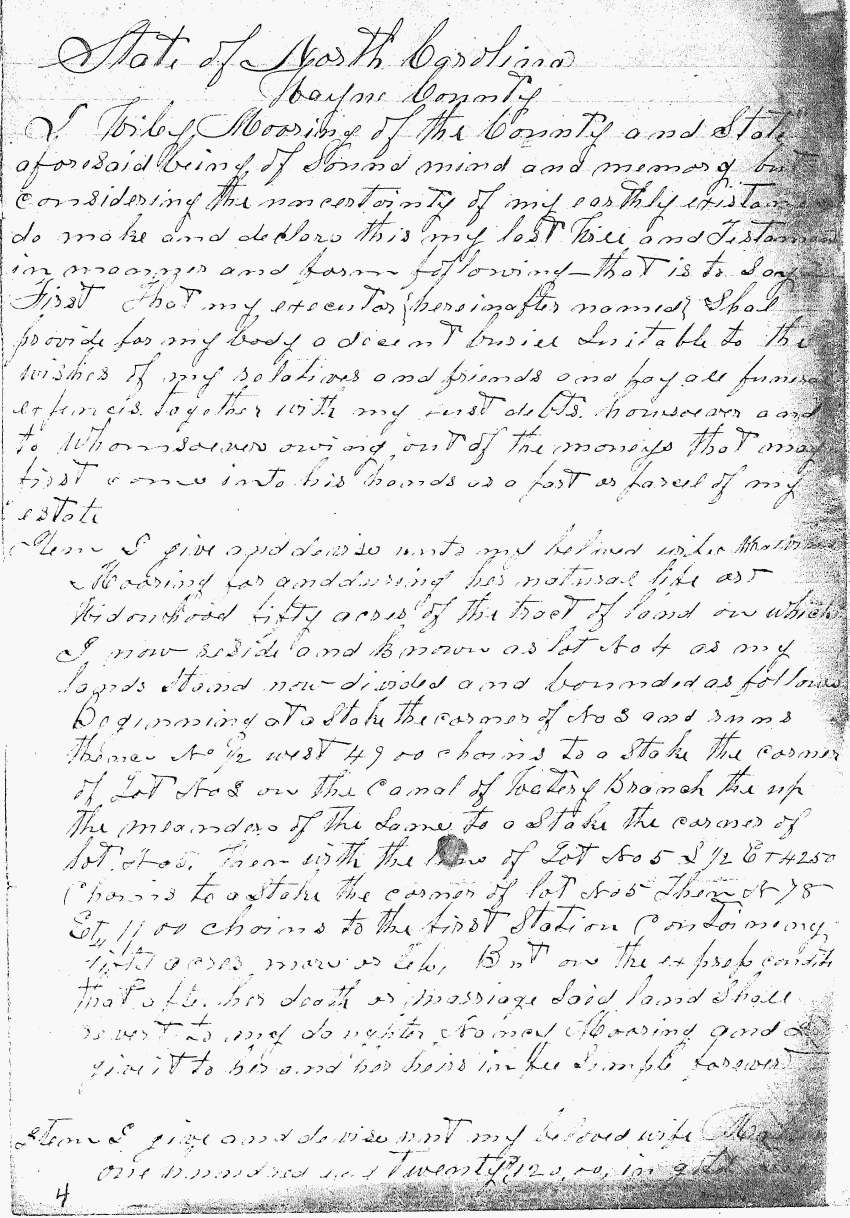 State of North Carolina
Wayne County
I Wiley Mooring of the County and State
aforesaid being of Sound mind and memory but
considering the uncertainty of my earthly existance
do make and declare this my last Will and Testament
in manner and form following that is to Say
First That my executor {hereinafter named} Shal
provide for my body a decent buriel Suitable to the
wishes of my relatives and friends and pay all funeral
expences together with my just debts howsoever and
to whomsoever owing out of the moneys that may
first come into his hands as a part or parcel of my
estate
Item I give and devise unto my beloved wife
Mooring for and during her natural life or
Widowhood fifty acres of the tract of land on which
I now reside and Known as lot No 4 as my
lands Stand now divided and bounded as follows
Beginning at a Stake the corner of No 3 and runs
thence No ½ west 49 00 chains to a Stake the corner
of Lot No 3 on the Canal of Watery Branch the up
the meanders of the Same to a Stake the corner of
lot No 5. Then with the line of Lot No 5 S ½ Et 42 50
Chains to a Stake the corner of lot No 5 Then N 78
Et 11 00 chains to the first Station Containing
fifty acres more or less, But on the express condition
that after her death or marriage Said land Shall
revert to my daughter Nancy Mooring and I
give it to her and her heirs in fee Simple forever
Item I give and devise unt my beloved wife
one hundred and Twenty 120,00, in gold
4